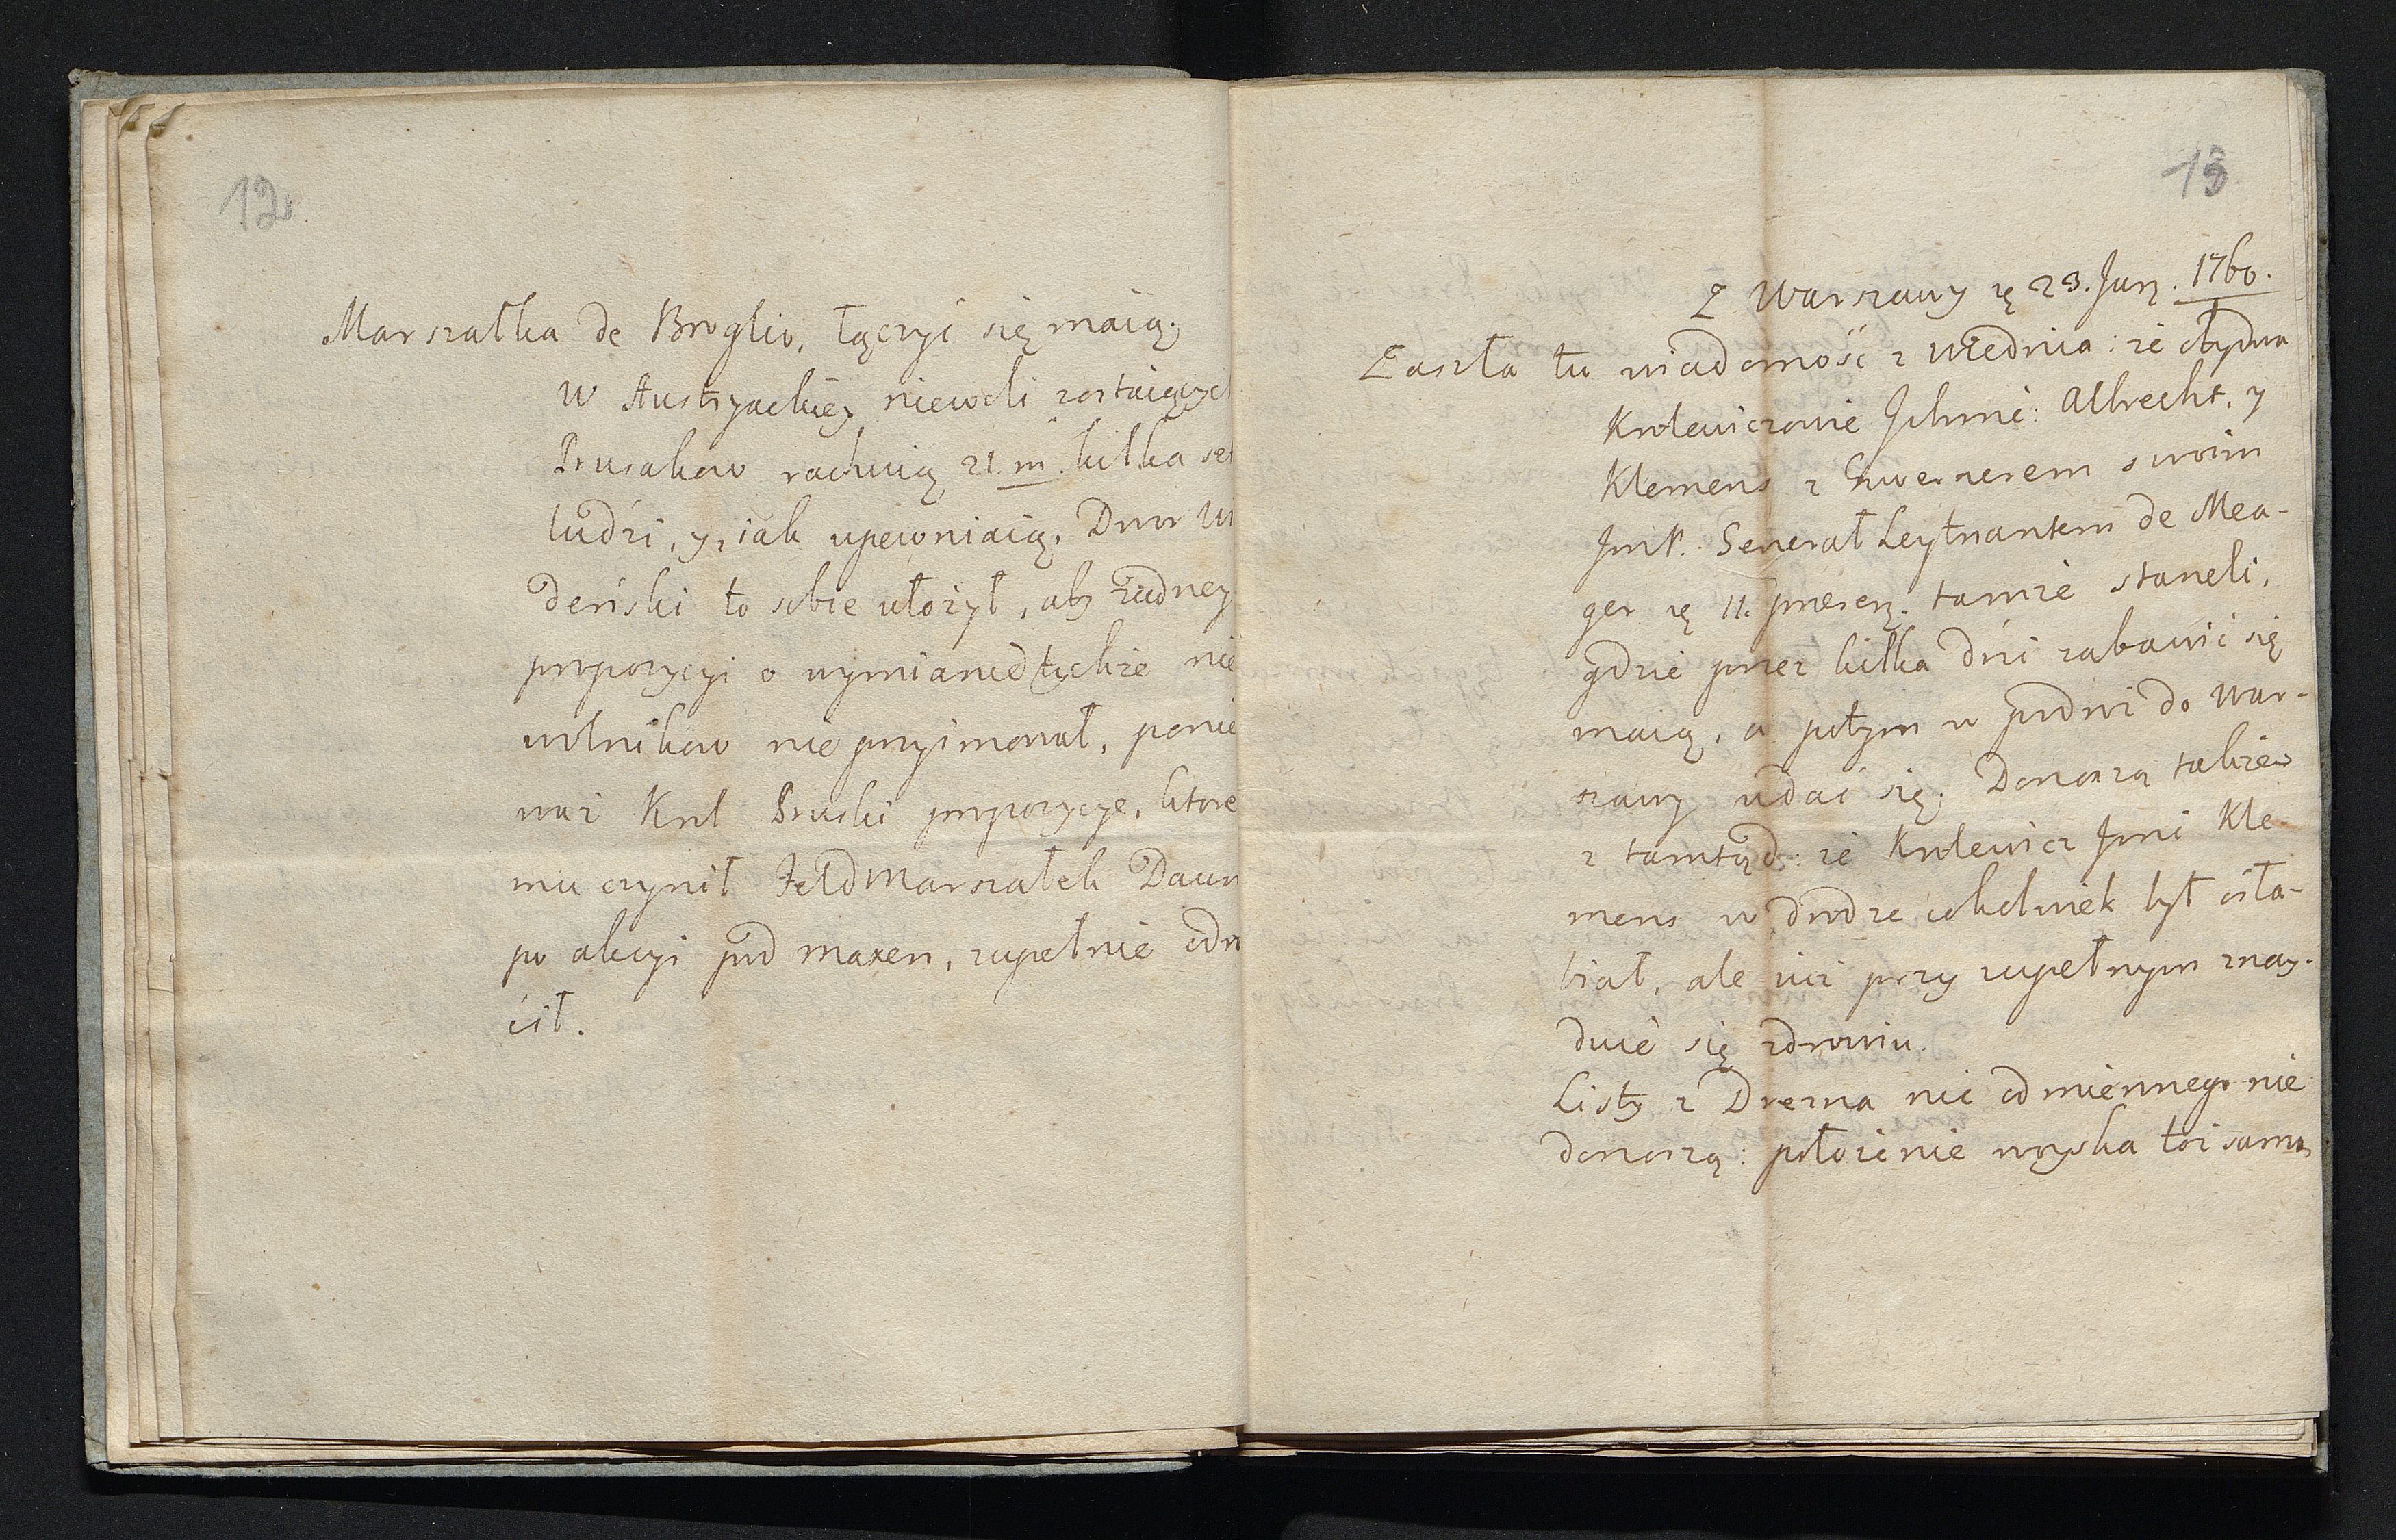 12
Marszałka de Broglio, łączyć się maią.
W Austryackiey niewoli zostaiących
Prusakow rachuią 21. m. kilka set
ludzi, y, iak upewniaią, Dwor Wi
deński to sobie ułożył, aby żadney
propozycyi o wymianie tychże nie
wolnikow nie przyimował, ponie
waż Krol Pruski propozycye, ktore
mu czynił FeldMarszałek Daun
po akcyi pod Maxen, zupełnie odrzu
cił.
13
Z Warszawy 23. Jan. 1760.
Zaszła tu wiadomość z Wiednia: że obydwa
Krolewiczowie Jchmć: Albrecht, y
Klemens z Guwernerem swoim
Jmp. Generał Leytnantem de Mea-
ger 11. praesen. tamże staneli,
gdzie przez kilka dni zabawić się
maią, a potym w podroż do War-
szawy udać się. Donoszą także
z tamtąd: że Krolewicz Jmć Kle-
mens w drodze cokolwiek był osła-
biał, ale iuż przy zupełnym znay-
duie się zdrowiu.
Listy z Drezna nic odmiennego nie
donoszą: położenie woyska toż samo